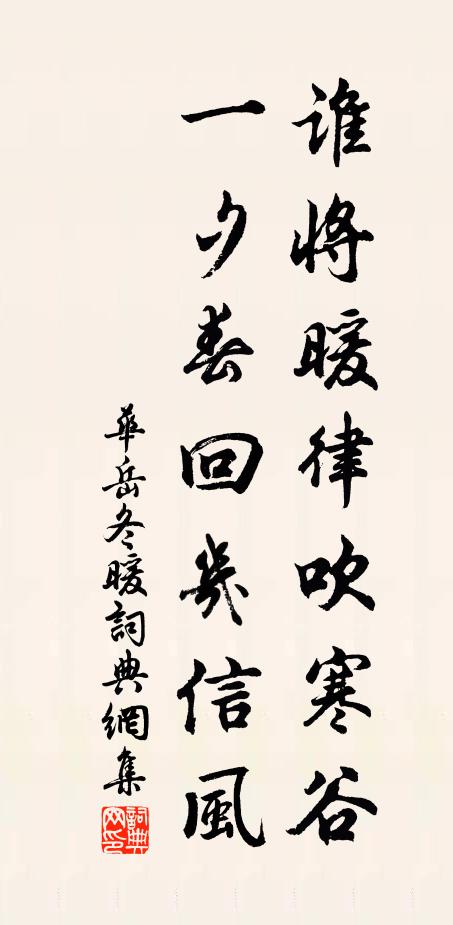 誰將暖律吹寒谷
一夕春回幾信風
華岳冬暖詞典網集
詞典網印